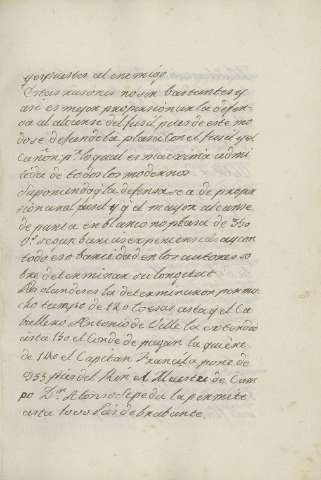 y opuestas al enemigo.
Estas rasones no son bastantes y
asi es mejor proporsionar la defen-
sa al alcanse del fusil pues de este mo
do se defiende la plasa con el fusil y el
cañon p.r lo qual es maxima admi
tida de todos los modernos
suponiendo q la defensa sea de propor
sion al fusil y q el mayor alcanse
de punta en blanco no pasara de 350
segun barias experiencias ay con
todo eso bariedad en los autores so
bre determinar su longitud
Los olandeses la determinaron por mu
cho tiempo de 120 toesas asta q el Ca
ballero Antonio de Ville la extendio
asta 130 el Conde de pagan la quiere
de 140 el Capitan Fransisco pone de
933 pies del Rin el Maestre de Cam
po D.n Alonso sepeda la permite
asta 1000 pies de brabante